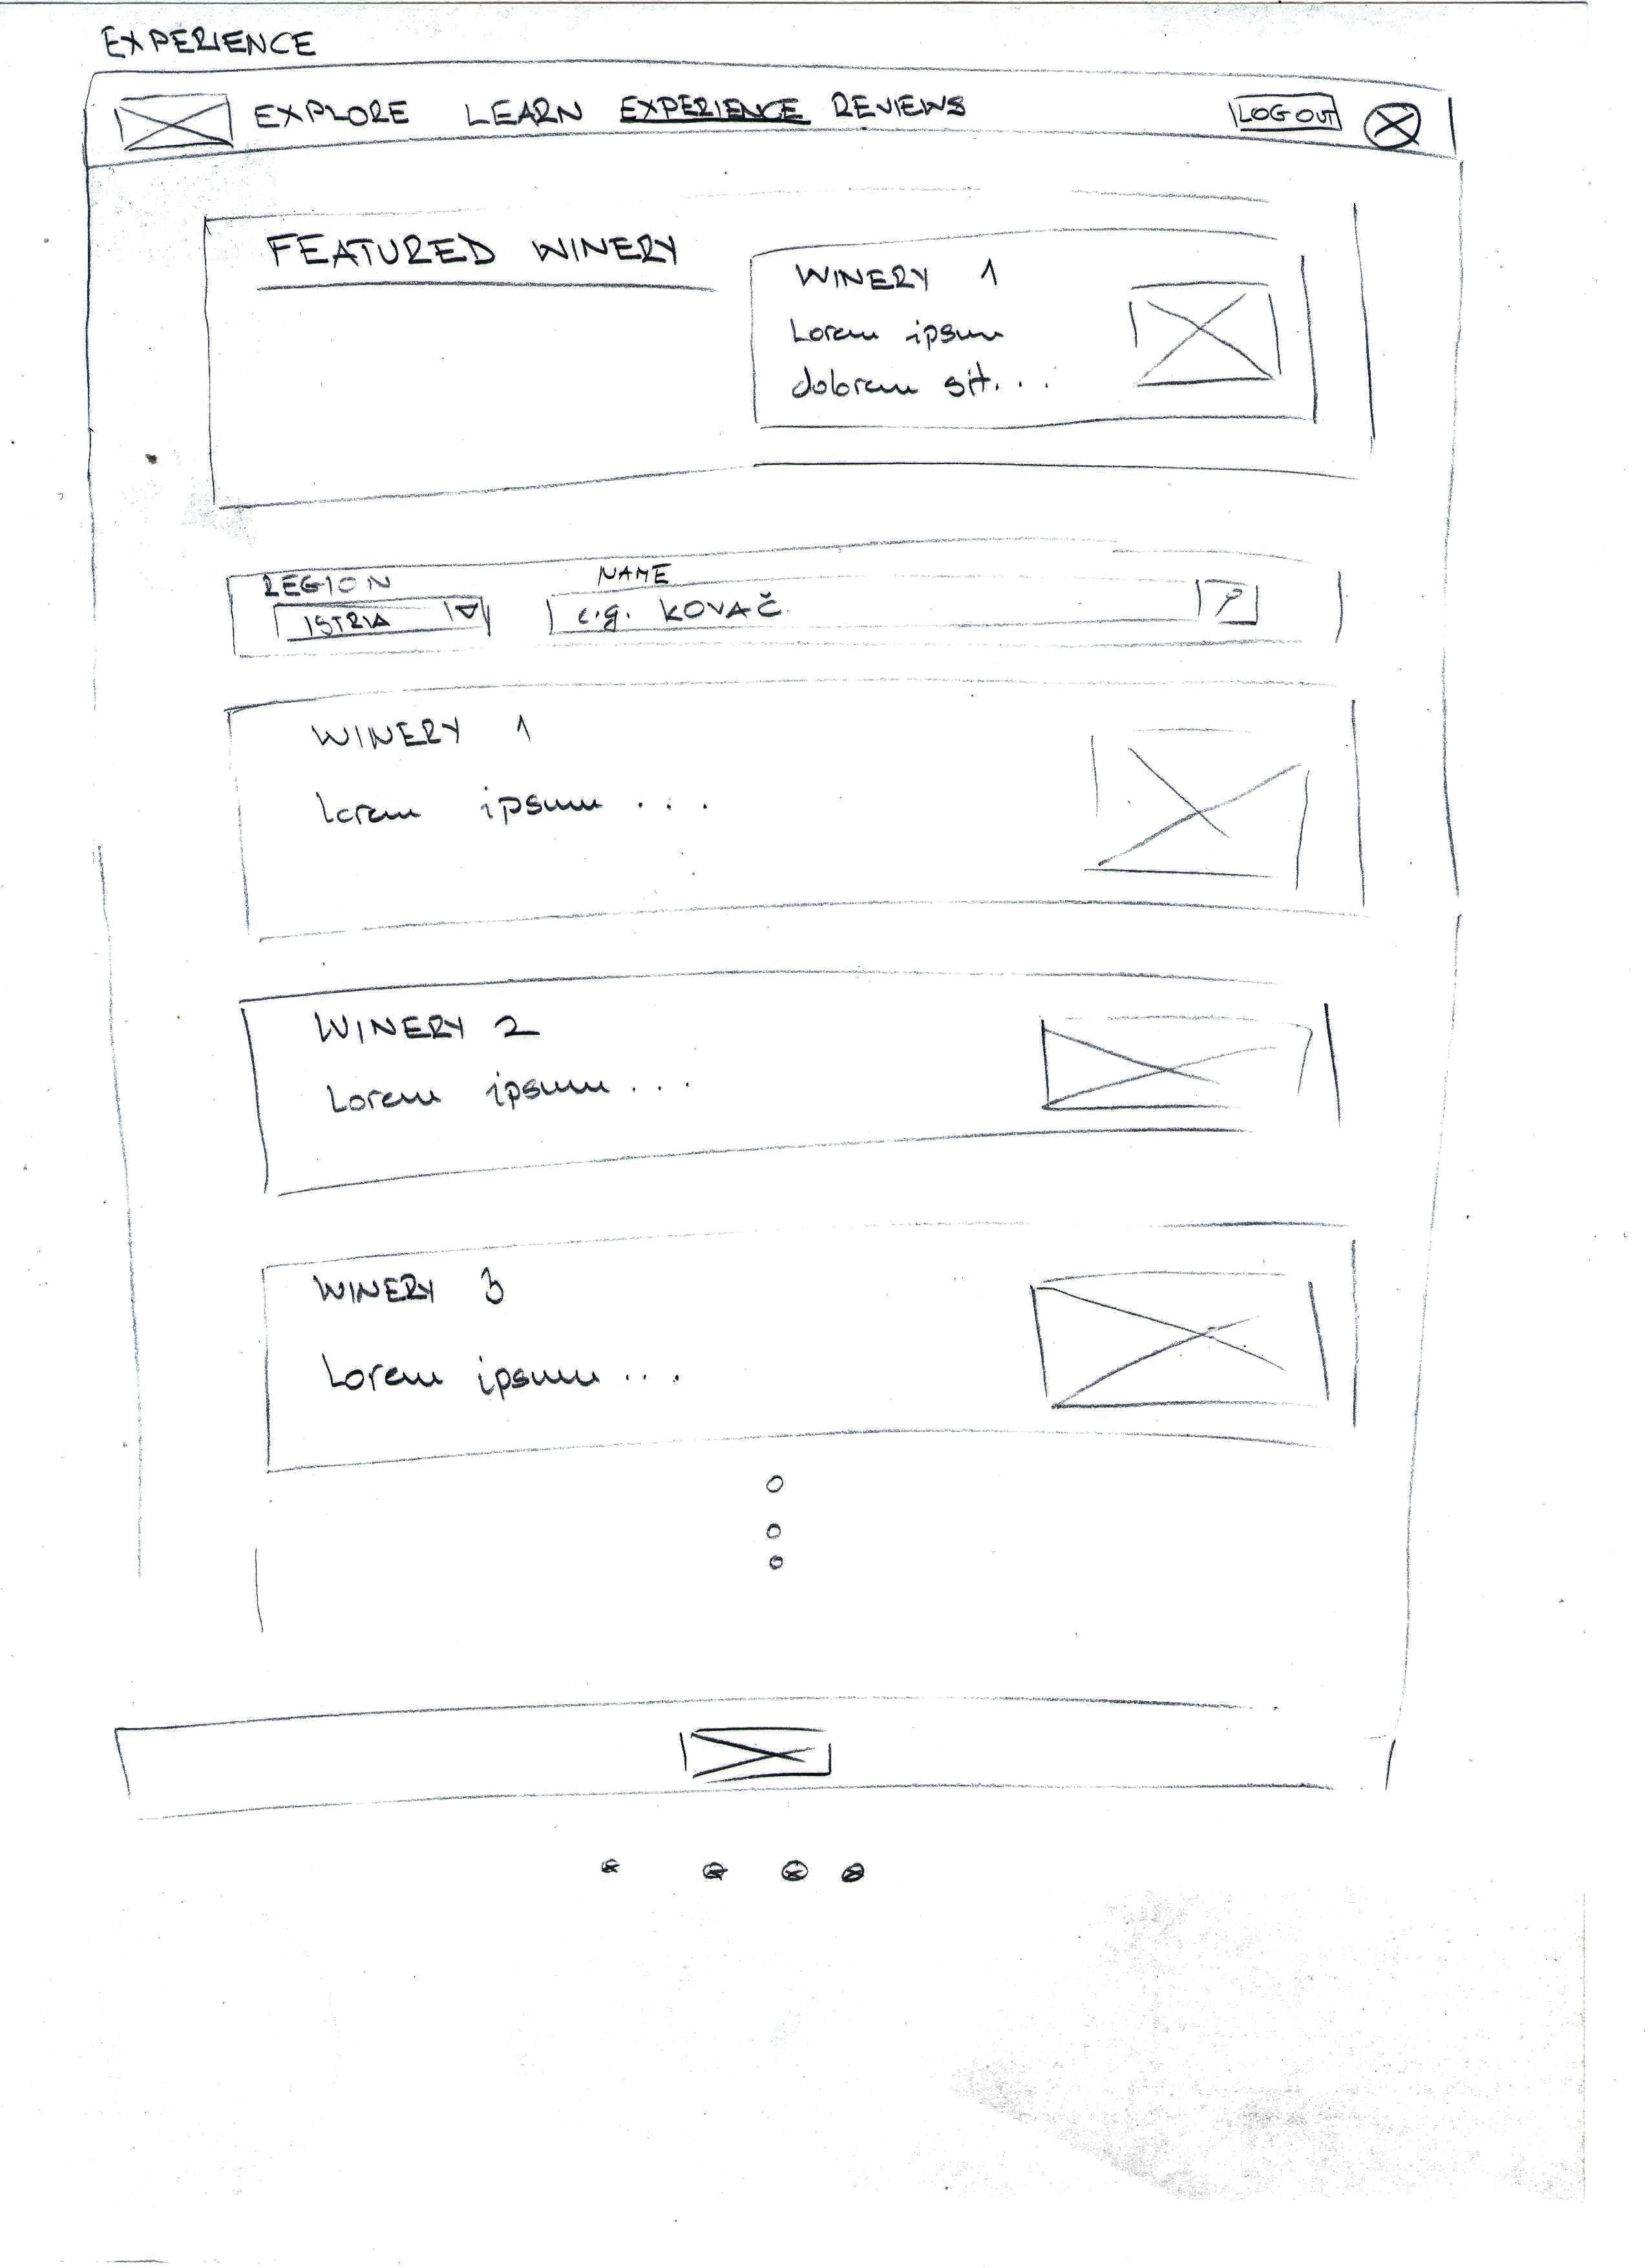 EXPERIENCE
EXPLORE LEARN EXPERIENCE REVIEWS LOG OUT
FEATURED WINERY
WINERY 1
Lorem ipsum
dolorem sit...
REGION NAME
ISTRIA e.g. KOVAČ
WINERY 1
Lorem ipsum ...
WINERY 2
Lorem ipsum ...
WINERY 3
Lorem ipsum ...